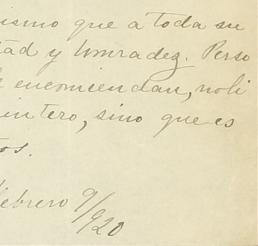 ismo que a toda su
tad y honradez. Perso
encomiendan, no li
intero, sino que es
os.
febrero 9/920